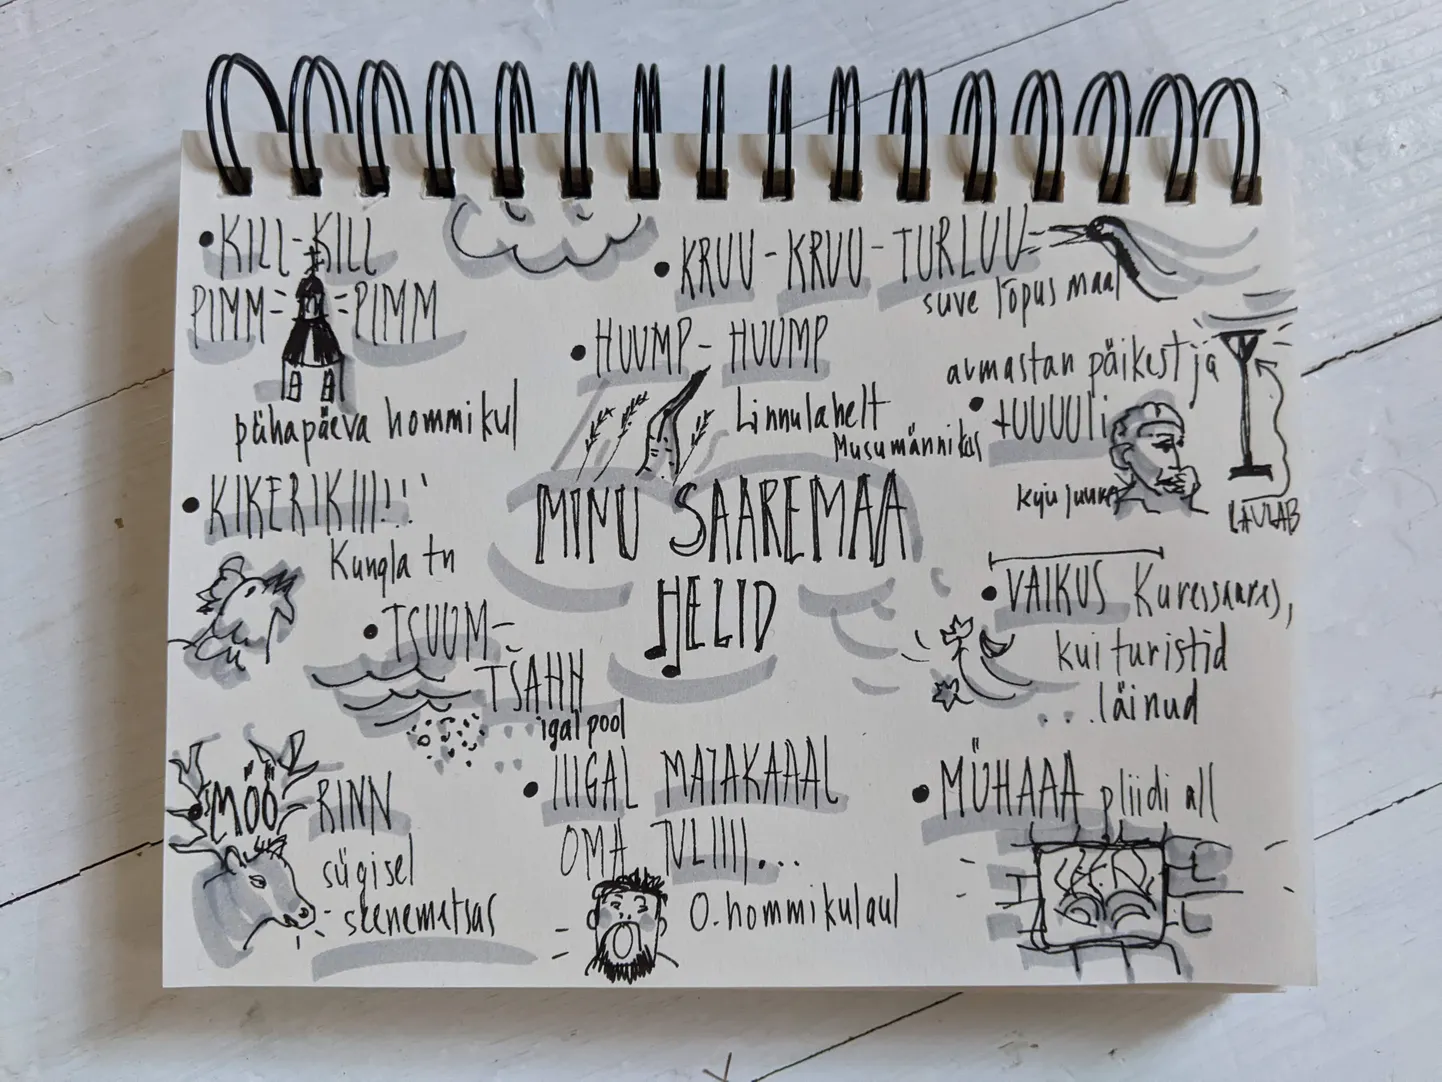 KILL-KILL
PIMM-PIMM
pühapäeva hommikul
KRUU-KRUU-TURLUU
suve lõpus maal
HUUMP-HUUMP
Linnulahelt
armastan päikest ja
tUUUUli
Musumännikus
kuju juures
LAULAB
KIKERIKIII!!!
Kungla tn
MINU SAAREMAA
HELID
TSUUM-
TSAHH
igal pool
VAIKUS Kuressaares,
kui turistid
...läinud
MÖÖ
RINN
sügisel
seenemetsas
IIIGAL MAJAKAAAL
OMA TULIIII...
O. hommikulaul
MÜHAAA pliidi all